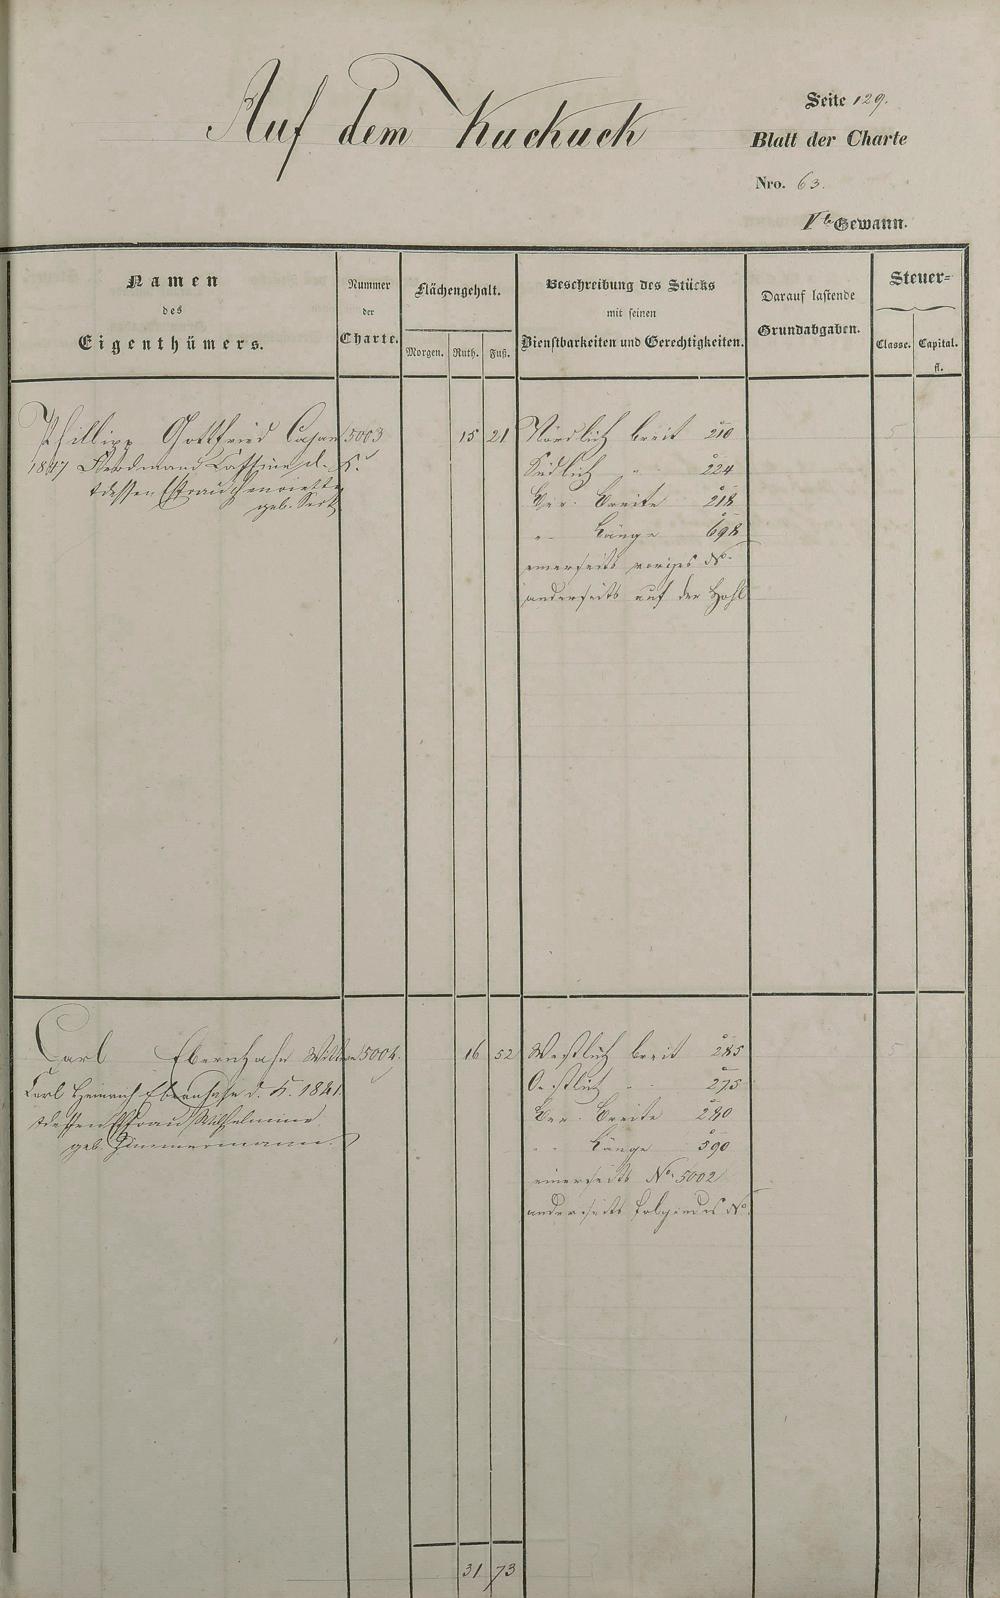 Auf dem Kuckuck
Seite 129.
Blatt der Charte
Nro. 63.
Gewann.
Namen
des
Eigenthümers.
Nummer
der
Charte.
Flächengehalt.
Morgen. Ruth. Fuß.
Beschreibung des Stücks
mit seinen
Dienstbarkeiten und Gerechtigkeiten.
Darauf lastende
Grundabgaben.
Steuer=
Classe. Capital.
fl.
Phillipp Gottfried 5003 15 21 Nördlich breit 210 5
1847 Südlich " 224
dessen Ehefrau Henriette Breite 218
geb. " Länge 698
einerseits voriges No.
anderseits auf der Hohl
Carl 5004. 16 52 Westlich breit 285 5
Carl Heinrich d. 1841 Oestlich " 275
dessen Ehefrau Wilhelmine Breite 280
geb. Zimmermann. " Länge 590
einerseits No. 5002
anderseits folgendes No.
31 73